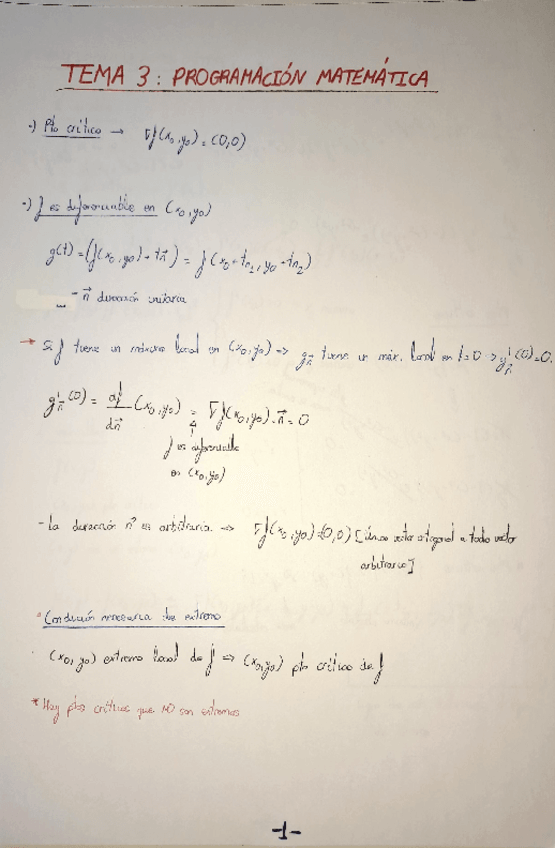 TEMA 3: PROGRAMACIÓN MATEMÁTICA
·) Pto crítico → ∇f(x₀,y₀)=(0,0)
·) f es diferenciable en (x₀,y₀)
g(t)=(f(x₀,y₀)+tn⃗)= f(x₀+tn₁, y₀+tn₂)
- n⃗ dirección unitaria
→ Si f tiene un máximo local en (x₀,y₀) => gn⃗ tiene un máx. local en t=0 => g'n⃗(0)=0.
g'n⃗(0) = df/dn⃗ (x₀,y₀) = ∇f(x₀,y₀)·n⃗ = 0
f es diferenciable
en (x₀,y₀)
- La dirección n⃗ es arbitraria => ∇f(x₀,y₀)=(0,0) [Único vector ortogonal a todo vector
arbitrario]
* Condición necesaria de extremo
(x₀,y₀) extremo local de f => (x₀,y₀) pto crítico de f
* Hay ptos críticos que NO son extremos
-1-